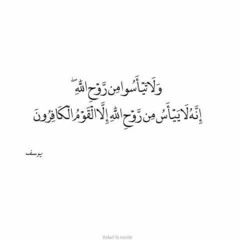 وَلَا تَيْأَسُوا مِن رَّوْحِ اللَّهِ ۖ
إِنَّهُ لَا يَيْأَسُ مِن رَّوْحِ اللَّهِ إِلَّا الْقَوْمُ الْكَافِرُونَ
يوسف